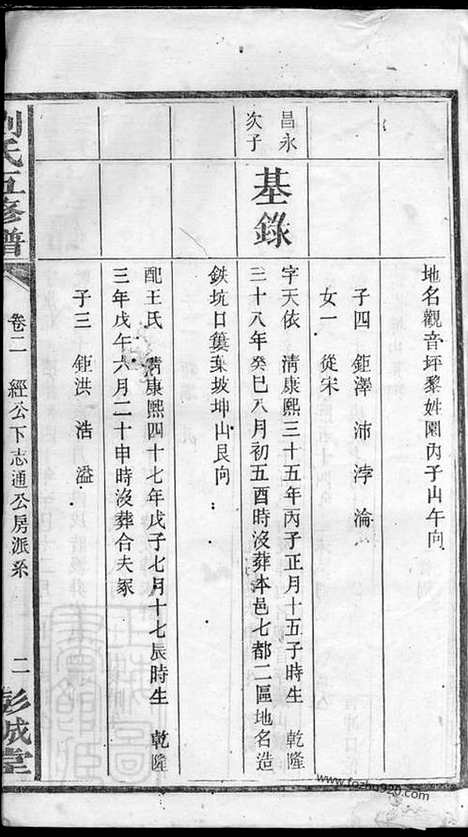 地名觀音坪黎姓園內子山午向
子四 鉅澤 沛 浡 淪
女一 從宋
昌永
次子
基錄
字天依 清康熙三十五年丙子正月十五子時生 乾隆
三十八年癸巳八月初五酉時沒葬本邑七都二區地名造
鉄坑口簍葉坡坤山艮向
配王氏 清康熙四十七年戊子七月十七辰時生 乾隆
三年戊午六月二十申時沒葬合夫冢
子三 鉅洪 浩 溢
劉氏五修譜
卷二 經公下志通公房派系
二
彭城堂
www.fozhu920.com